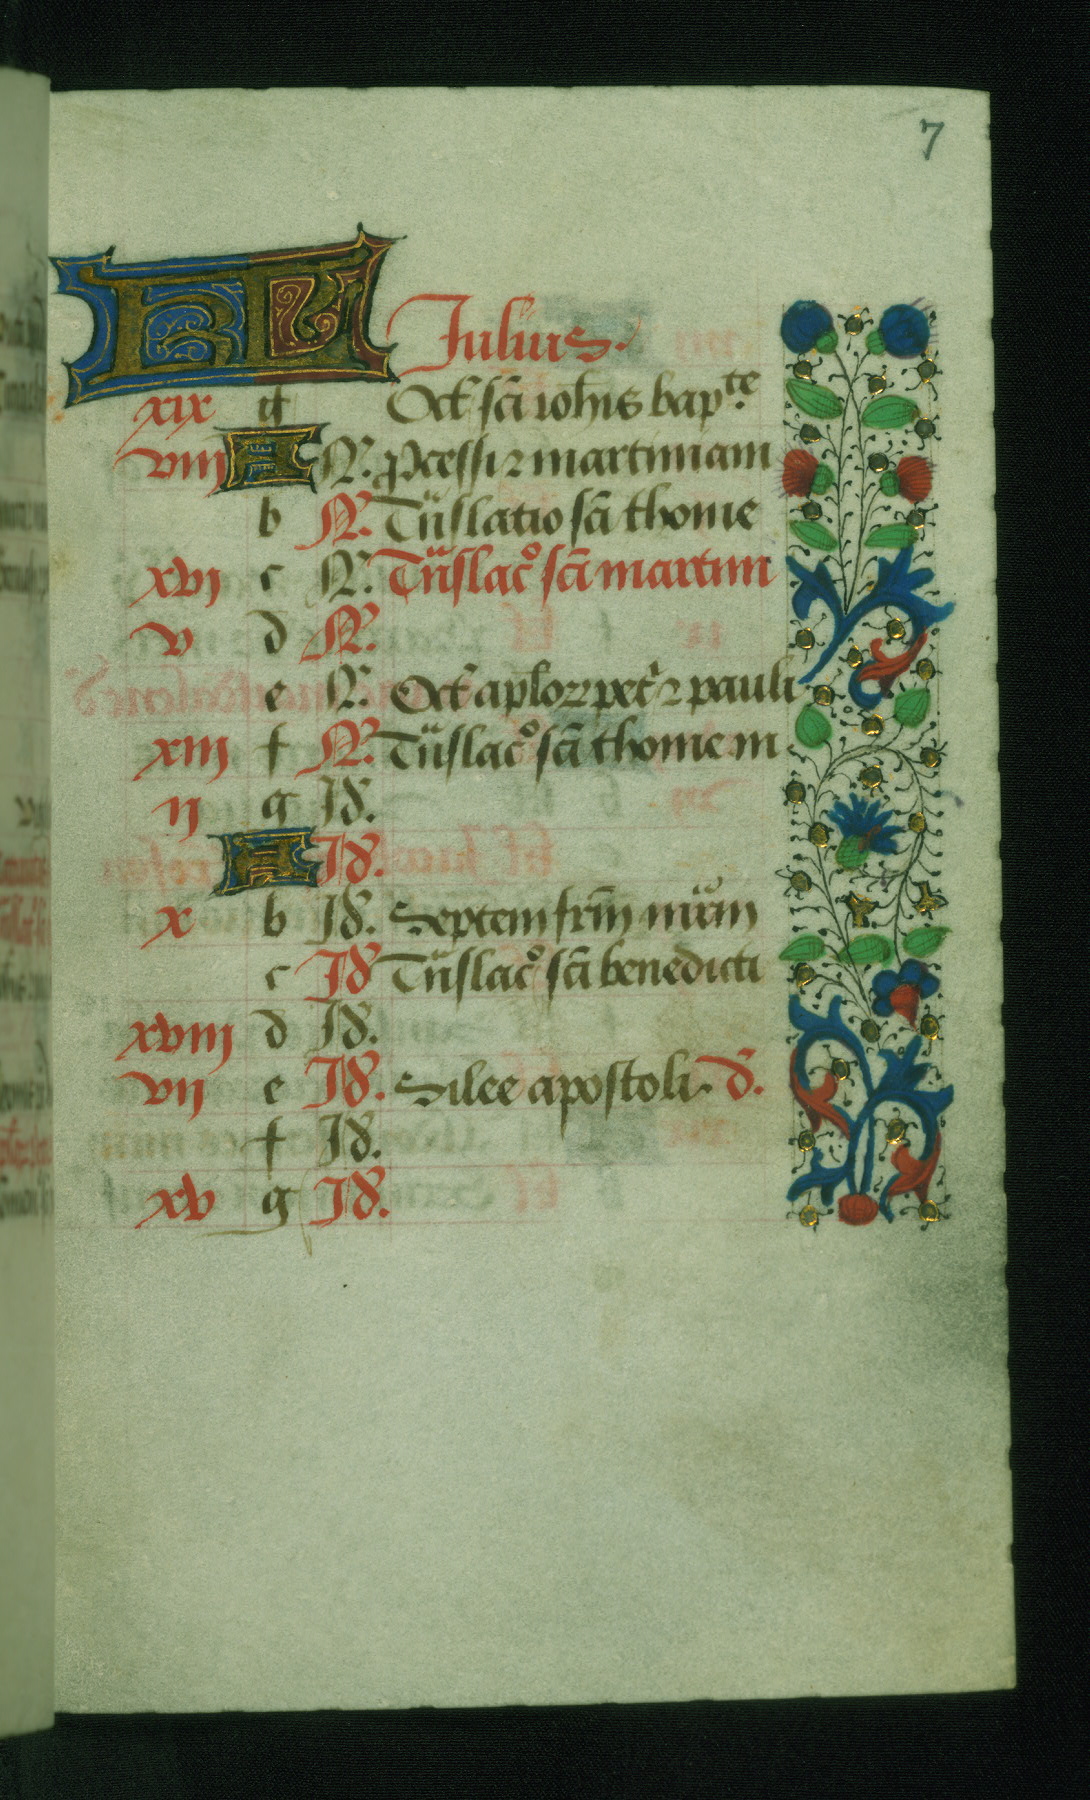 7
KL Julius.
xix g Oct͛ sc̄i ioh̄is bap.te
viii A N. ꝓcessi ⁊ martiniani
b N. Trāslatio sc̄i thome
xvi c N. Trāslac͛o sc̄i martini
v d N.
e N. Oct͛ aploꝝ pet͛ ⁊ pauli
xiii f N. Trāslac͛o sc̄i thome m
ii g Id.
A Id.
x b Id. Septem fr̄m mr̄m
c Id Trāslac͛o sc̄i benedicti
xviii d Id.
vii e Id. Silee apostoli. d.
f Id.
xv g Id.